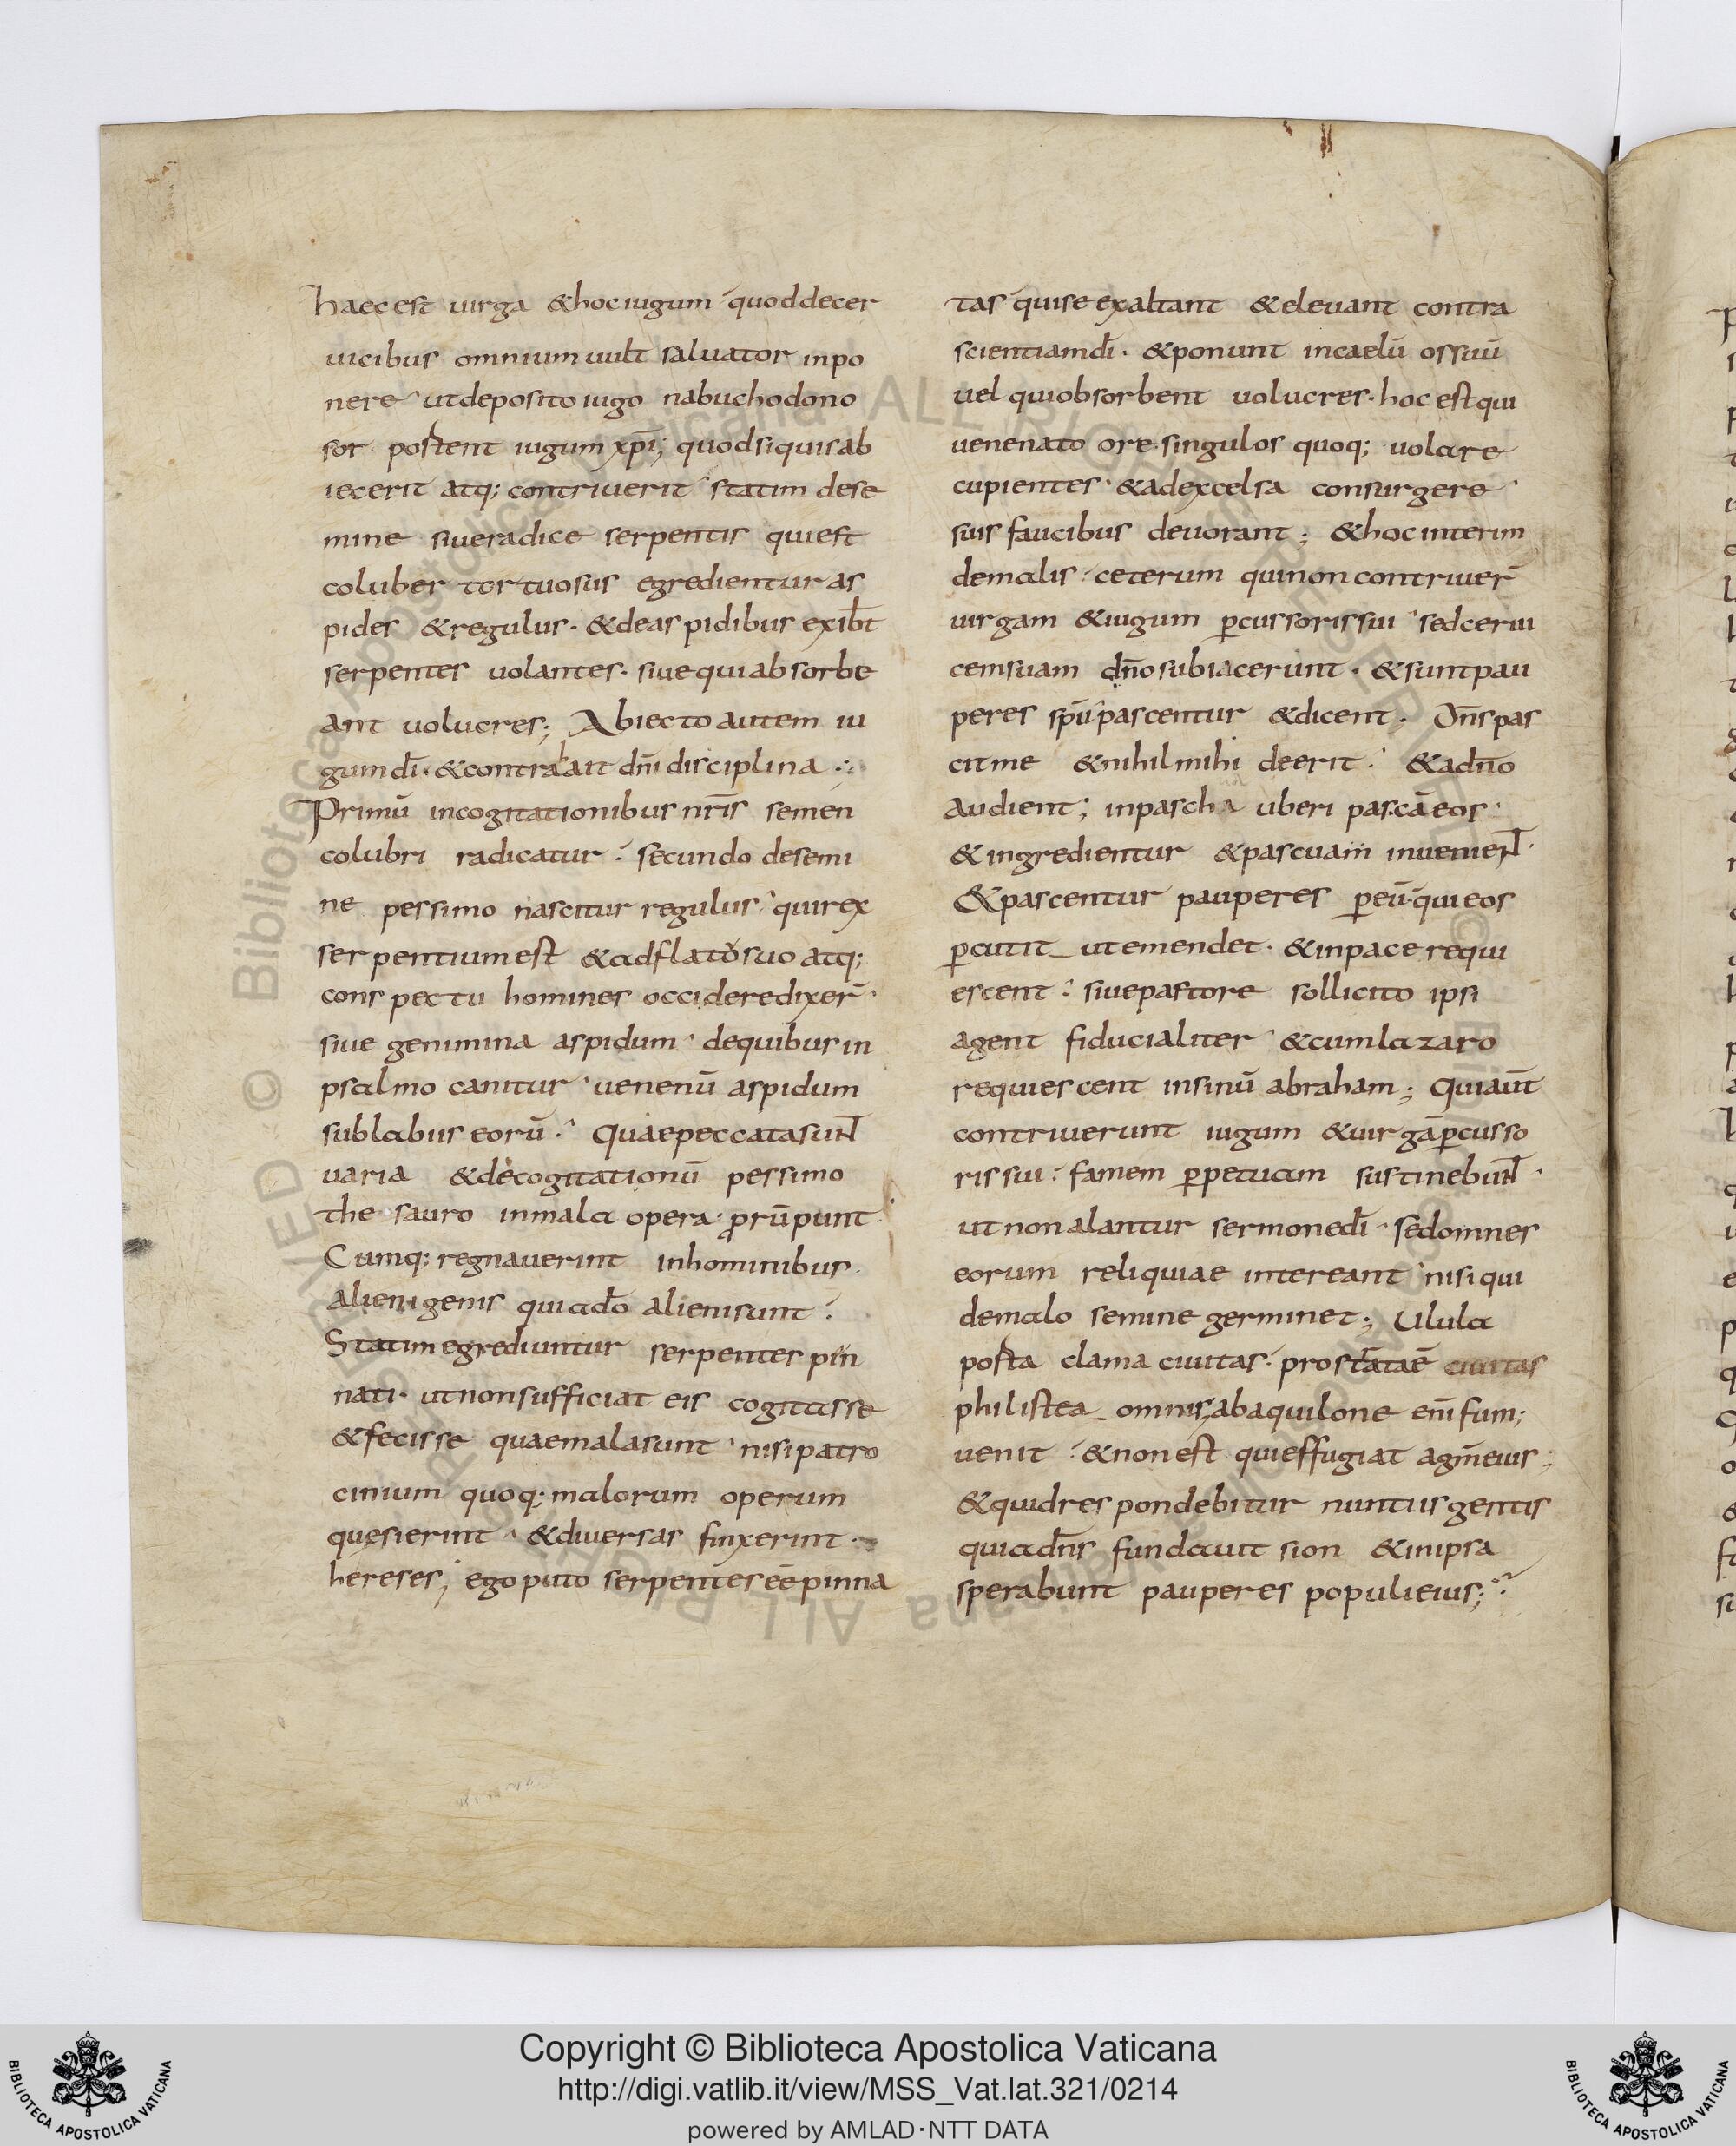 haec est uirga & hoc iugum quod decer
uicibus omnium uult saluator inpo
nere ut deposito iugo nabuchodono
sor postent iugum xp̄i; quod si quis ab
iecerit atq; contriuerit statim de se
mine siue radice serpentis qui est
coluber tortuosus egredientur as
pides & regulus· & de aspidibus exib̄t
serpentes uolantes· siue qui absorbe
ant uolucres; Abiecto autem iu
gum dī· & contrabait dn̄i disciplina ·:
Primū in cogitationibus nr̄is semen
colubri radicatur: secundo de semi
ne pessimo nascitur regulus qui rex
serpentium est & adflato suo atq;
conspectu homines occidere dixer̄·
siue genimina aspidum de quibus in
psalmo canitur uenenū aspidum
sub labiis eorū· Quae peccata sunt
uaria & de cogitationū pessimo
thesauro in mala opera prūpunt·
Cumq; regnauerint in hominibus
alienigenis qui a dō alieni sunt:
Statim egrediuntur serpentes pin
nati· ut non sufficiat eis cogitasse
& fecisse quae mala sunt nisi patro
cinium quoq; malorum operum
quesierint & diuersas finxerint·
hereses; ego puto serpentes eē pinna
tas qui se exaltant & eleuant contra
scientiam dī· & ponunt in caelū os suū
uel qui obsorbent uolucres· hoc est qui
uenenato ore· singulos quoq; uolare
cupientes & ad excelsa consurgere
suis faucibus deuorant; & hoc interim
de malis: ceterum qui non contriuer̄
uirgam & iugum p̄cussoris sui sed cerui
cem suam dn̄o subiacerunt· & sunt pau
peres sp̄u pascentur & dicent· Dn̄s pas
cit me & nihil mihi deerit: & a dn̄o
audient; in pascha uberi pascā eos·
& ingredientur & pascuam inuenient·
& pascentur pauperes p̄ eū· qui eos
p̄cutit ut emendet· & in pace requi
escent: siue pastore sollicito ipsi
agent fiducialiter & cum lazaro
requiescent in sinū abraham; Qui aūt
contriuerunt iugum & uirgā p̄cusso
ris sui: famem p̄petuam sustinebunt·
ut non alantur sermone dī sed omnes
eorum reliquiae intereant nisi qui
de malo semine germinet; Ulula
posta clama ciuitas· prostatae ciuitas
philistea omnis, ab aquilone enī fum;
uenit: & non est qui effugiat agm̄ eius;
& quid respondebitur nuntiis gentis
quia dn̄s fundauit sion & in ipsa
sperabunt pauperes populi eius;
Copyright © Biblioteca Apostolica Vaticana
http://digi.vatlib.it/view/MSS_Vat.lat.321/0214
powered by AMLAD·NTT DATA
BIBLIOTECA APOSTOLICA VATICANA
BIBLIOTECA APOSTOLICA VATICANA